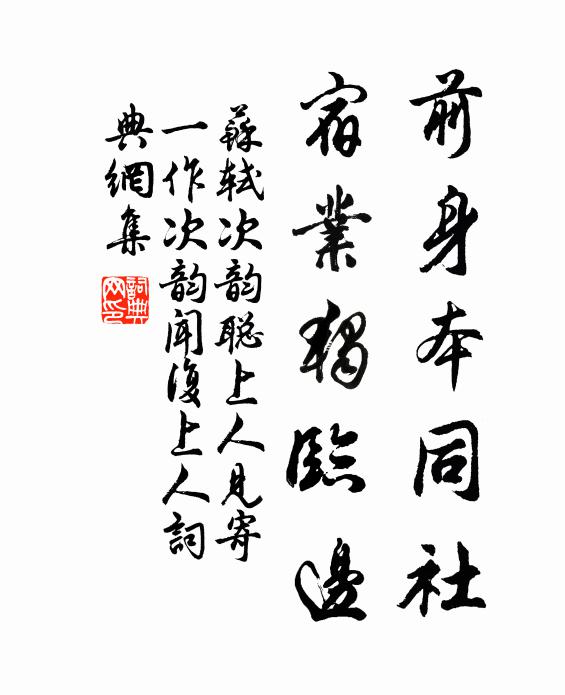 前身本同社
宿業獨臨邊
蘇軾次韵聪上人見寄
一作次韵聞復上人詞
典網集
詞典
网印